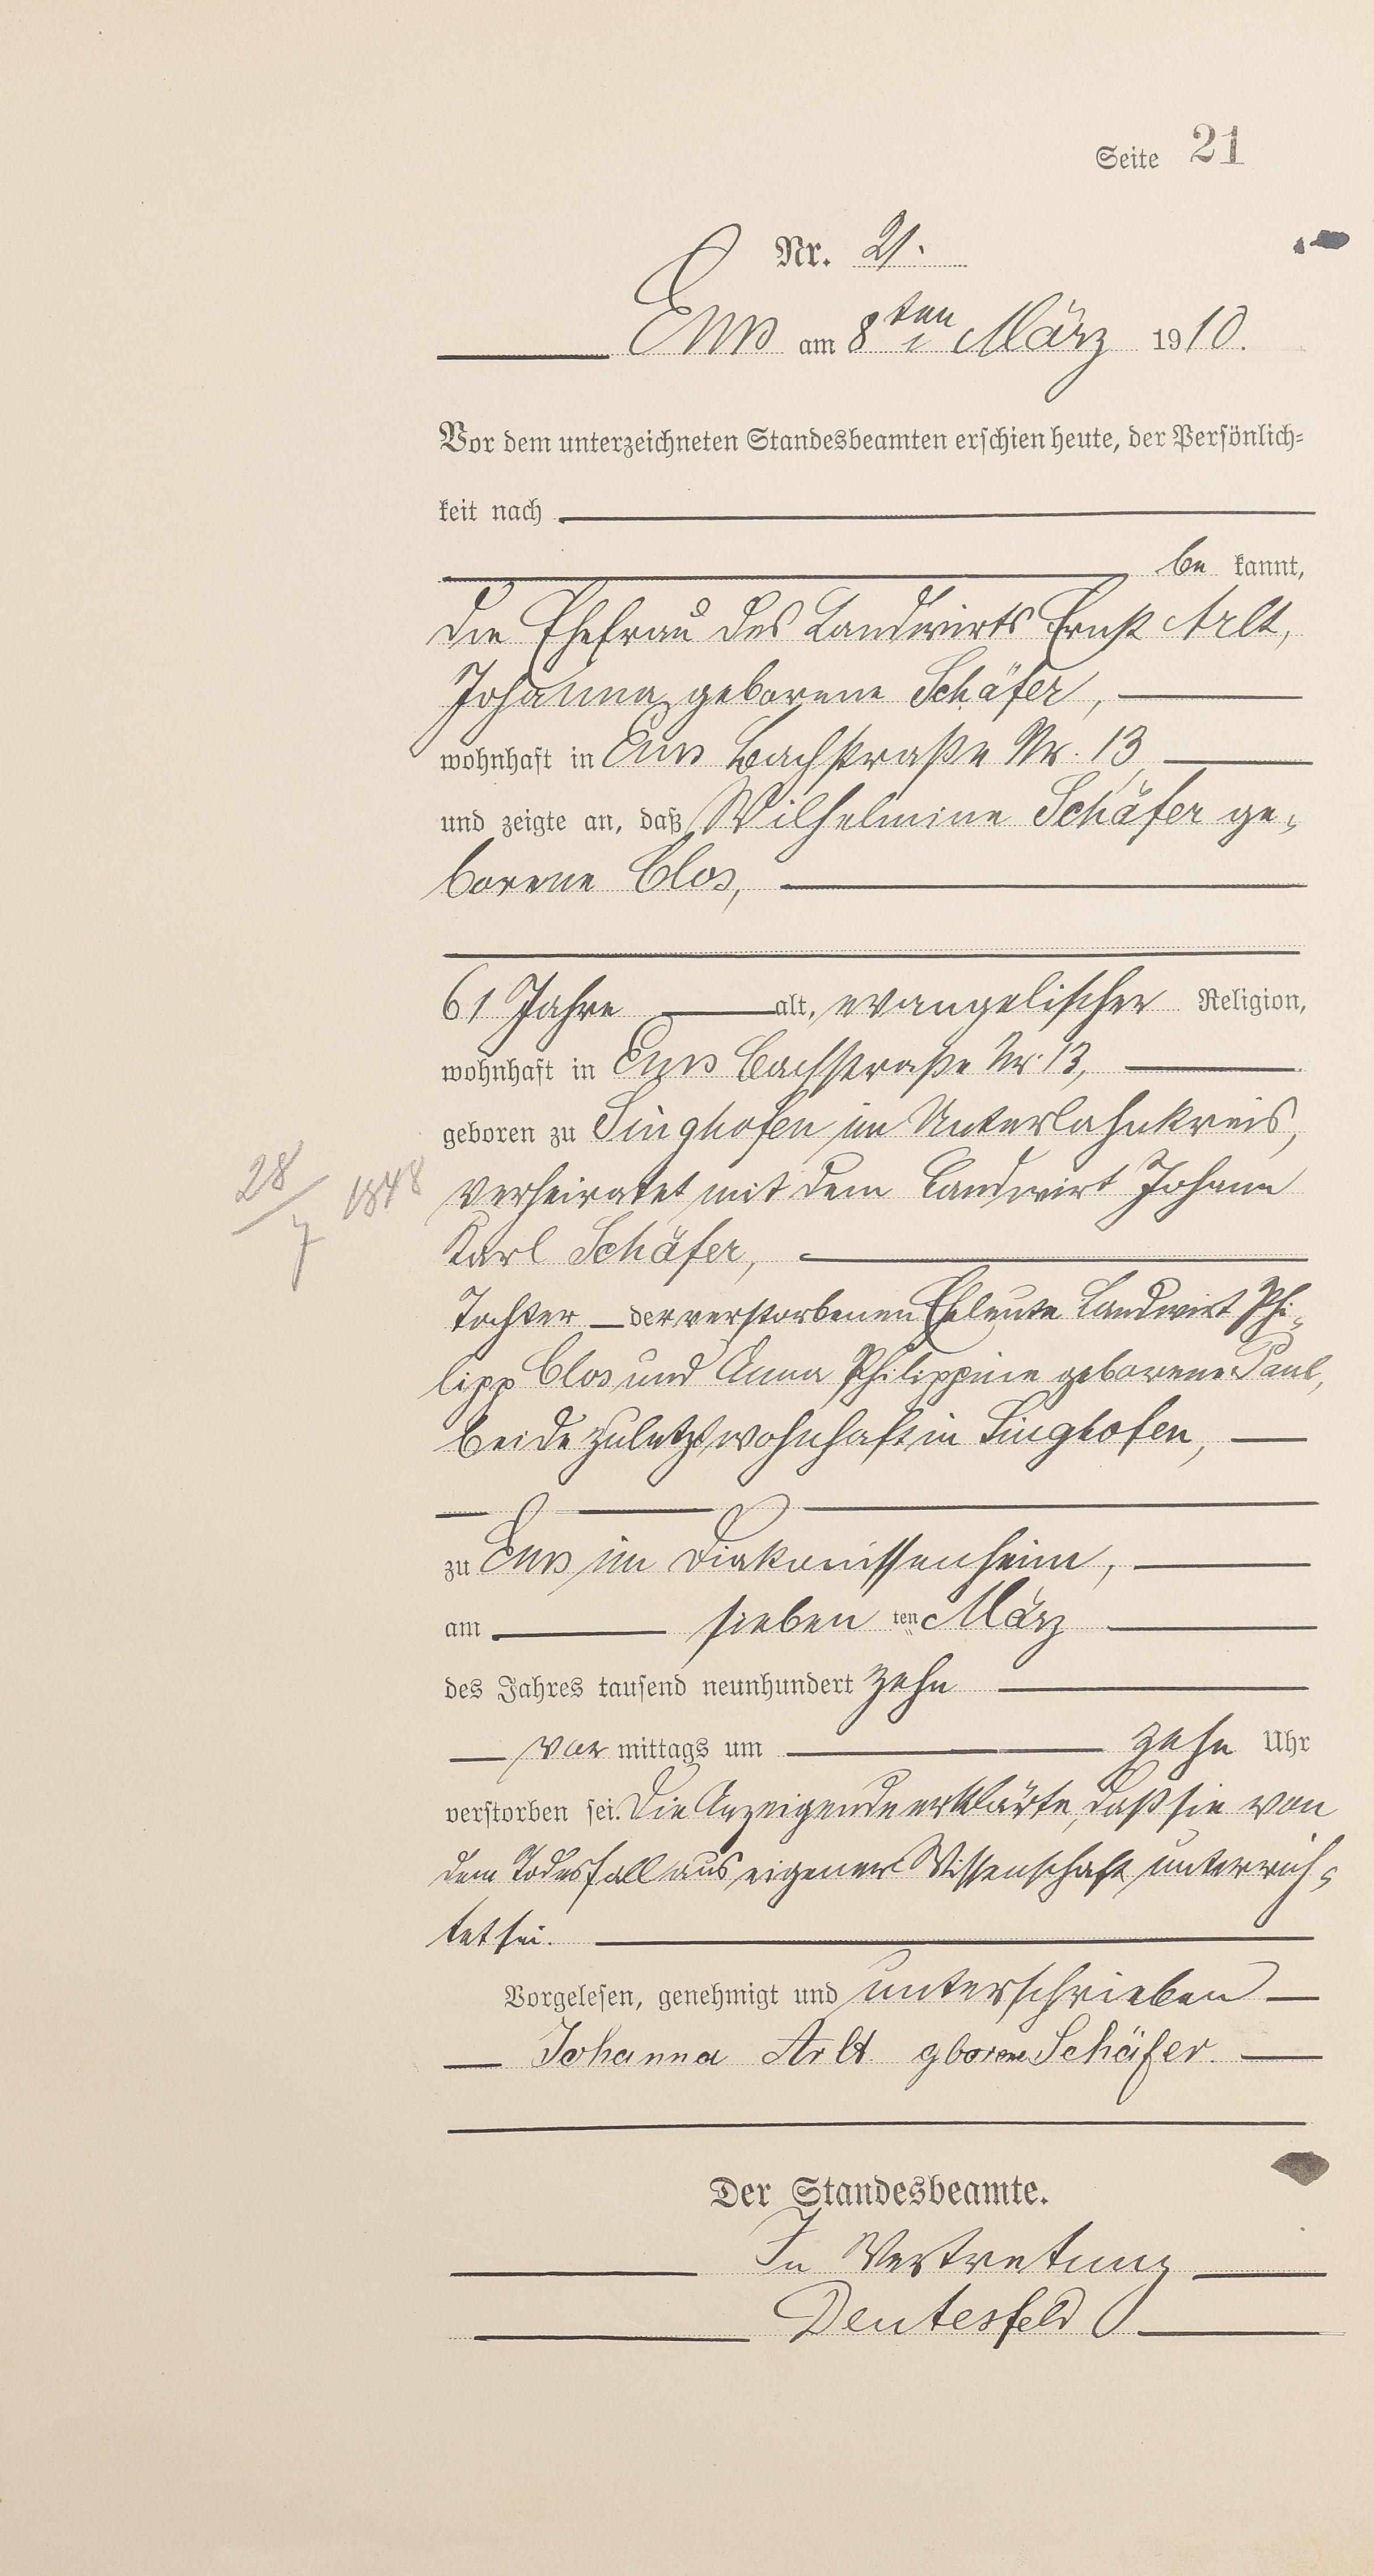 Seite 21
Nr. 21.
Ems am 8ten März 1910.
Vor dem unterzeichneten Standesbeamten erschien heute, der Persönlich-
keit nach
be kannt,
die Ehefrau des Landwirts Ernst Arlt,
Johanna geborene Schäfer,
wohnhaft in Ems Bachstraße Nr. 13
und zeigte an, daß Wilhelmine Schäfer ge-
borene Clos,
61 Jahre alt, evangelischer Religion,
wohnhaft in Ems Bachstraße Nr. 13,
geboren zu Singhofen im Unterlahnkreis,
28/7 1848
verheiratet mit dem Landwirt Johann
Karl Schäfer,
Tochter der verstorbenen Eheleute Landwirt Phi-
lipp Clos und Anna Philippine geborene Paul,
beide zuletzt wohnhaft in Singhofen,
zu Ems im Diakonissenheim,
am sieben ten März
des Jahres tausend neunhundert zehn
vor mittags um zehn Uhr
verstorben sei. Die Anzeigende erklärte, daß sie von
dem Todesfall aus eigener Wissenschaft unterrich-
tet sei.
Vorgelesen, genehmigt und unterschrieben
Johanna Arlt gborene Schäfer.
Der Standesbeamte.
In Vertretung
Deutesfeld